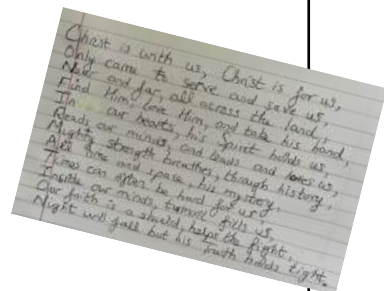 Christ is with us, Christ is for us,
Only came to serve and save us,
Near and far, all across the land,
Find Him, love Him, and take his hand,
In our hearts, his Spirit holds us,
Reads our minds, and leads and loves us,
Mighty strength breathes, through history,
All time and space, his mystery,
Times can often be hard for us,
Inside our minds, turmoil fills us,
Our faith is a shield, helps the fight,
Night will fall but his truth holds tight.